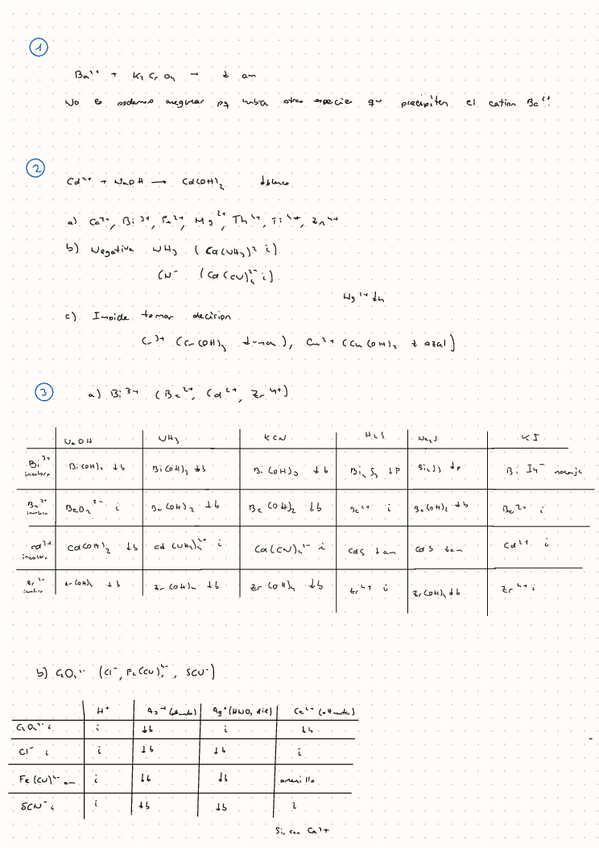 1
Ba²⁺ + K₂CrO₄ → ↓ am
No lo podemos asegurar pq habra otras especies qu precipiten el cation Ba²⁺.
2
Cd²⁺ + NaOH → Cd(OH)₂ ↓blanco
a) Ca²⁺, Bi³⁺, Mg²⁺, Th⁴⁺, Ti⁴⁺, Zr⁴⁺
b) Negativa NH₃
CN⁻
Hg²⁺ ↓n
c) Impide tomar decision
Cr³⁺ (Cr(OH)₃ Cu²⁺ (Cu(OH)₂ ↓ azul)
3 a) Bi³⁺ (Be²⁺, Cd²⁺, Zr⁴⁺)
NaOH NH₃ KCN H₂S Na₂S KI
Bi³⁺ incoloro Bi(OH)₃ ↓b Bi(OH)₃ ↓b Bi(OH)₃ ↓b Bi₂S₃ ↓p Bi₂S₃ ↓p Bi I₄⁻ naranja
Be²⁺ BeO₂²⁻ i Be(OH)₂ ↓b Be(OH)₂ ↓b Be²⁺ i Be(OH)₂ ↓b Be²⁺ i
Cd²⁺ incoloro Cd(OH)₂ ↓b Cd(NH₃)₄²⁺ i Cd(CN)₄²⁻ i CdS ↓am CdS ↓am Cd²⁺ i
Zr(OH)₄ ↓b Zr(OH)₄ ↓b Zr(OH)₄ ↓b Zr⁴⁺ i Zr(OH)₄ ↓b Zr⁴⁺ i
b) C₂O₄²⁻ (Cl⁻, Fe(CN)₆⁴⁻, SCN⁻)
H⁺ Ag⁺ Ag⁺ (HNO₃ dil) Ca²⁺
C₂O₄²⁻ i i ↓b i ↓b
Cl⁻ i i ↓b ↓b i
Fe(CN)₆⁴⁻ am i ↓b ↓b amarillo
SCN⁻ i i ↓b ↓b i
Si, con Ca²⁺